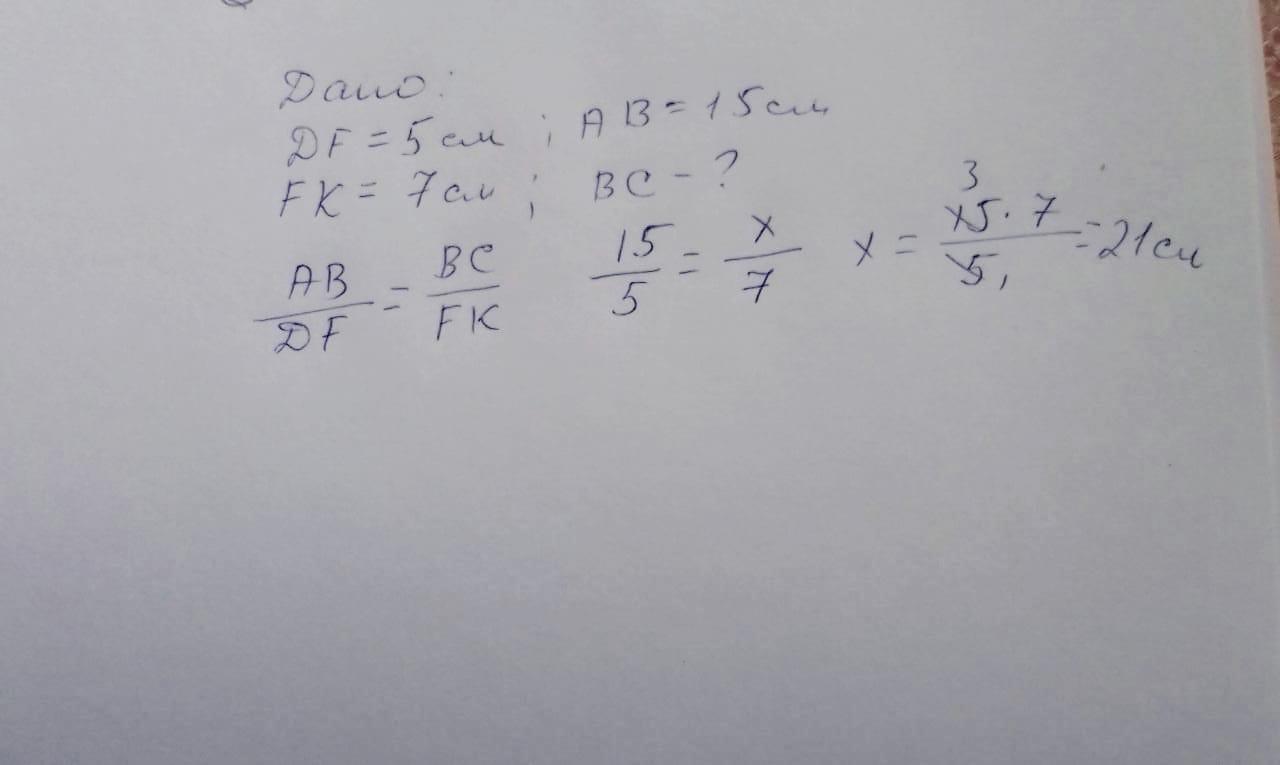 Дано:
DF = 5 см ; AB = 15 см
FK = 7 см ; BC - ?
AB/DF = BC/FK 15/5 = x/7 x = 15 · 7/5 = 21 см
3
1